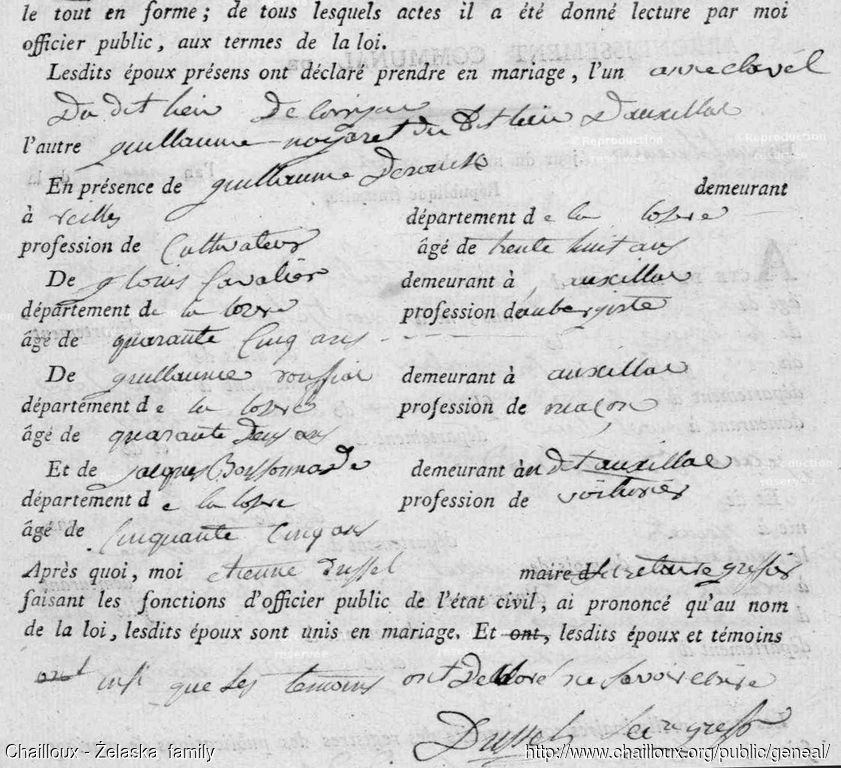 le tout en forme ; de tous lesquels actes il a été donné lecture par moi
officier public, aux termes de la loi.
Lesdits époux présens ont déclaré prendre en mariage, l'un anne clavel
Du dit lieu
l'autre guillaume nogaret du dit lieu Dauxillac
En présence de guillaume demeurant
à département de la lozere
profession de Cultivateur âgé de trente huit ans
De Louis Cavalier demeurant à auxillac
département de la lozere profession daubergiste
âgé de quarante Cinq ans
De guillaume demeurant à auxillac
département de la lozere profession de maçon
âgé de quarante Deux ans
Et de jacques Boissonnade demeurant à dit auxillac
département de la lozere profession de voiturier
âgé de Cinquante Cinq ans
Après quoi, moi etienne Dussel maire secretaire greffier
faisant les fonctions d'officier public de l'état civil, ai prononcé qu'au nom
de la loi, lesdits époux sont unis en mariage. Et ont, lesdits époux et témoins
ont que les temoins ont Declaré ne savoir ecrire
Dussel
Chailloux - Żelaska family
http://www.chailloux.org/public/geneal/